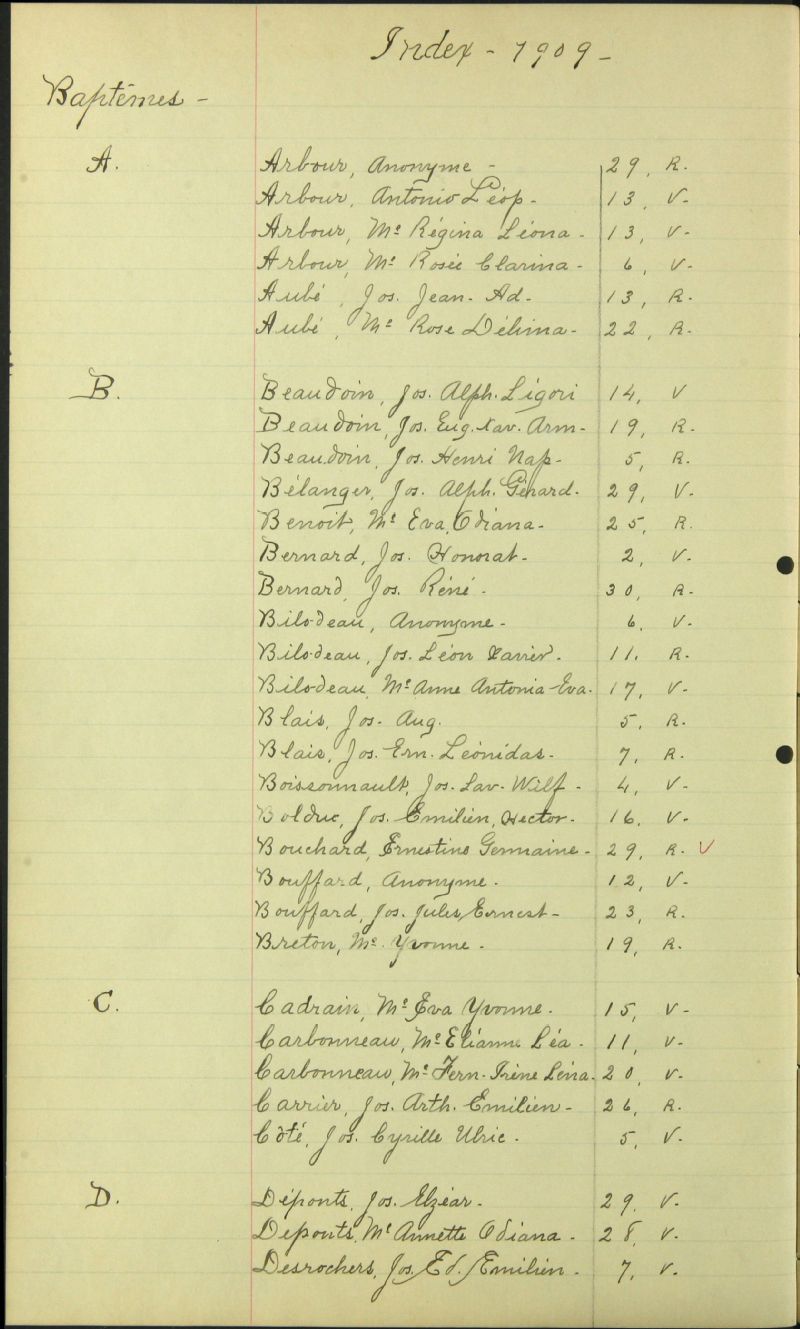 Index - 1909 -
Baptêmes -
A. Arbour, Anonyme - 29, R.
Arbour, Antonio Léop - 13, V-
Arbour, Me Régina Léona - 13, V-
Arbour, Me Rosée Clarina - 6, V-
Aubé, Jos. Jean. Ad - 13, R-
Aubé, Me Rose Délima - 22, R-
B. Beaudoin, Jos. Alph. Ligori 14, V
Beaudoin, Jos. Eug. Xav. Arm - 19, R-
Beaudoin, Jos. Henri Nap - 5, R-
Bélanger, Jos. Alph. Gérard - 29, V-
Benoit, Me Eva, Odiana - 25, R.
Bernard, Jos. Honorat - 2, V-
Bernard, Jos. Réné - 30, R-
Bilodeau, Anonyme - 6, V-
Bilodeau, Jos. Léon Xavier - 11. R.
Bilodeau, Me Anne Antonia Eva. 17, V-
Blais, Jos. Aug. 5, R-
Blais, Jos. Ern. Léonidas - 7, R.
Boissonnault, Jos. Lav. Wilf - 4, V-
Bolduc, Jos. Emilien, Hector - 16, V-
Bouchard, Ernestine Germaine - 29, R. V
Bouffard, Anonyme - 12, V-
Bouffard, Jos. Jules, Ernest - 23, R.
Breton, Me. Yvonne - 19, R.
C. Cadrain, Me Eva Yvonne - 15, V-
Carbonneau, Me Elianne Léa - 11, V-
Carbonneau, Me Fern. Irène Léna. 20, V-
Carrier, Jos. Arth. Emilien - 26, R.
Côté, Jos. Cyrille Ulric - 5, V-
D. Déponts, Jos. Elzéar - 29. V-
Deponts, Me Annette Odiana - 28, V-
Desrochers, Jos. Ed. Emilien - 7, V-